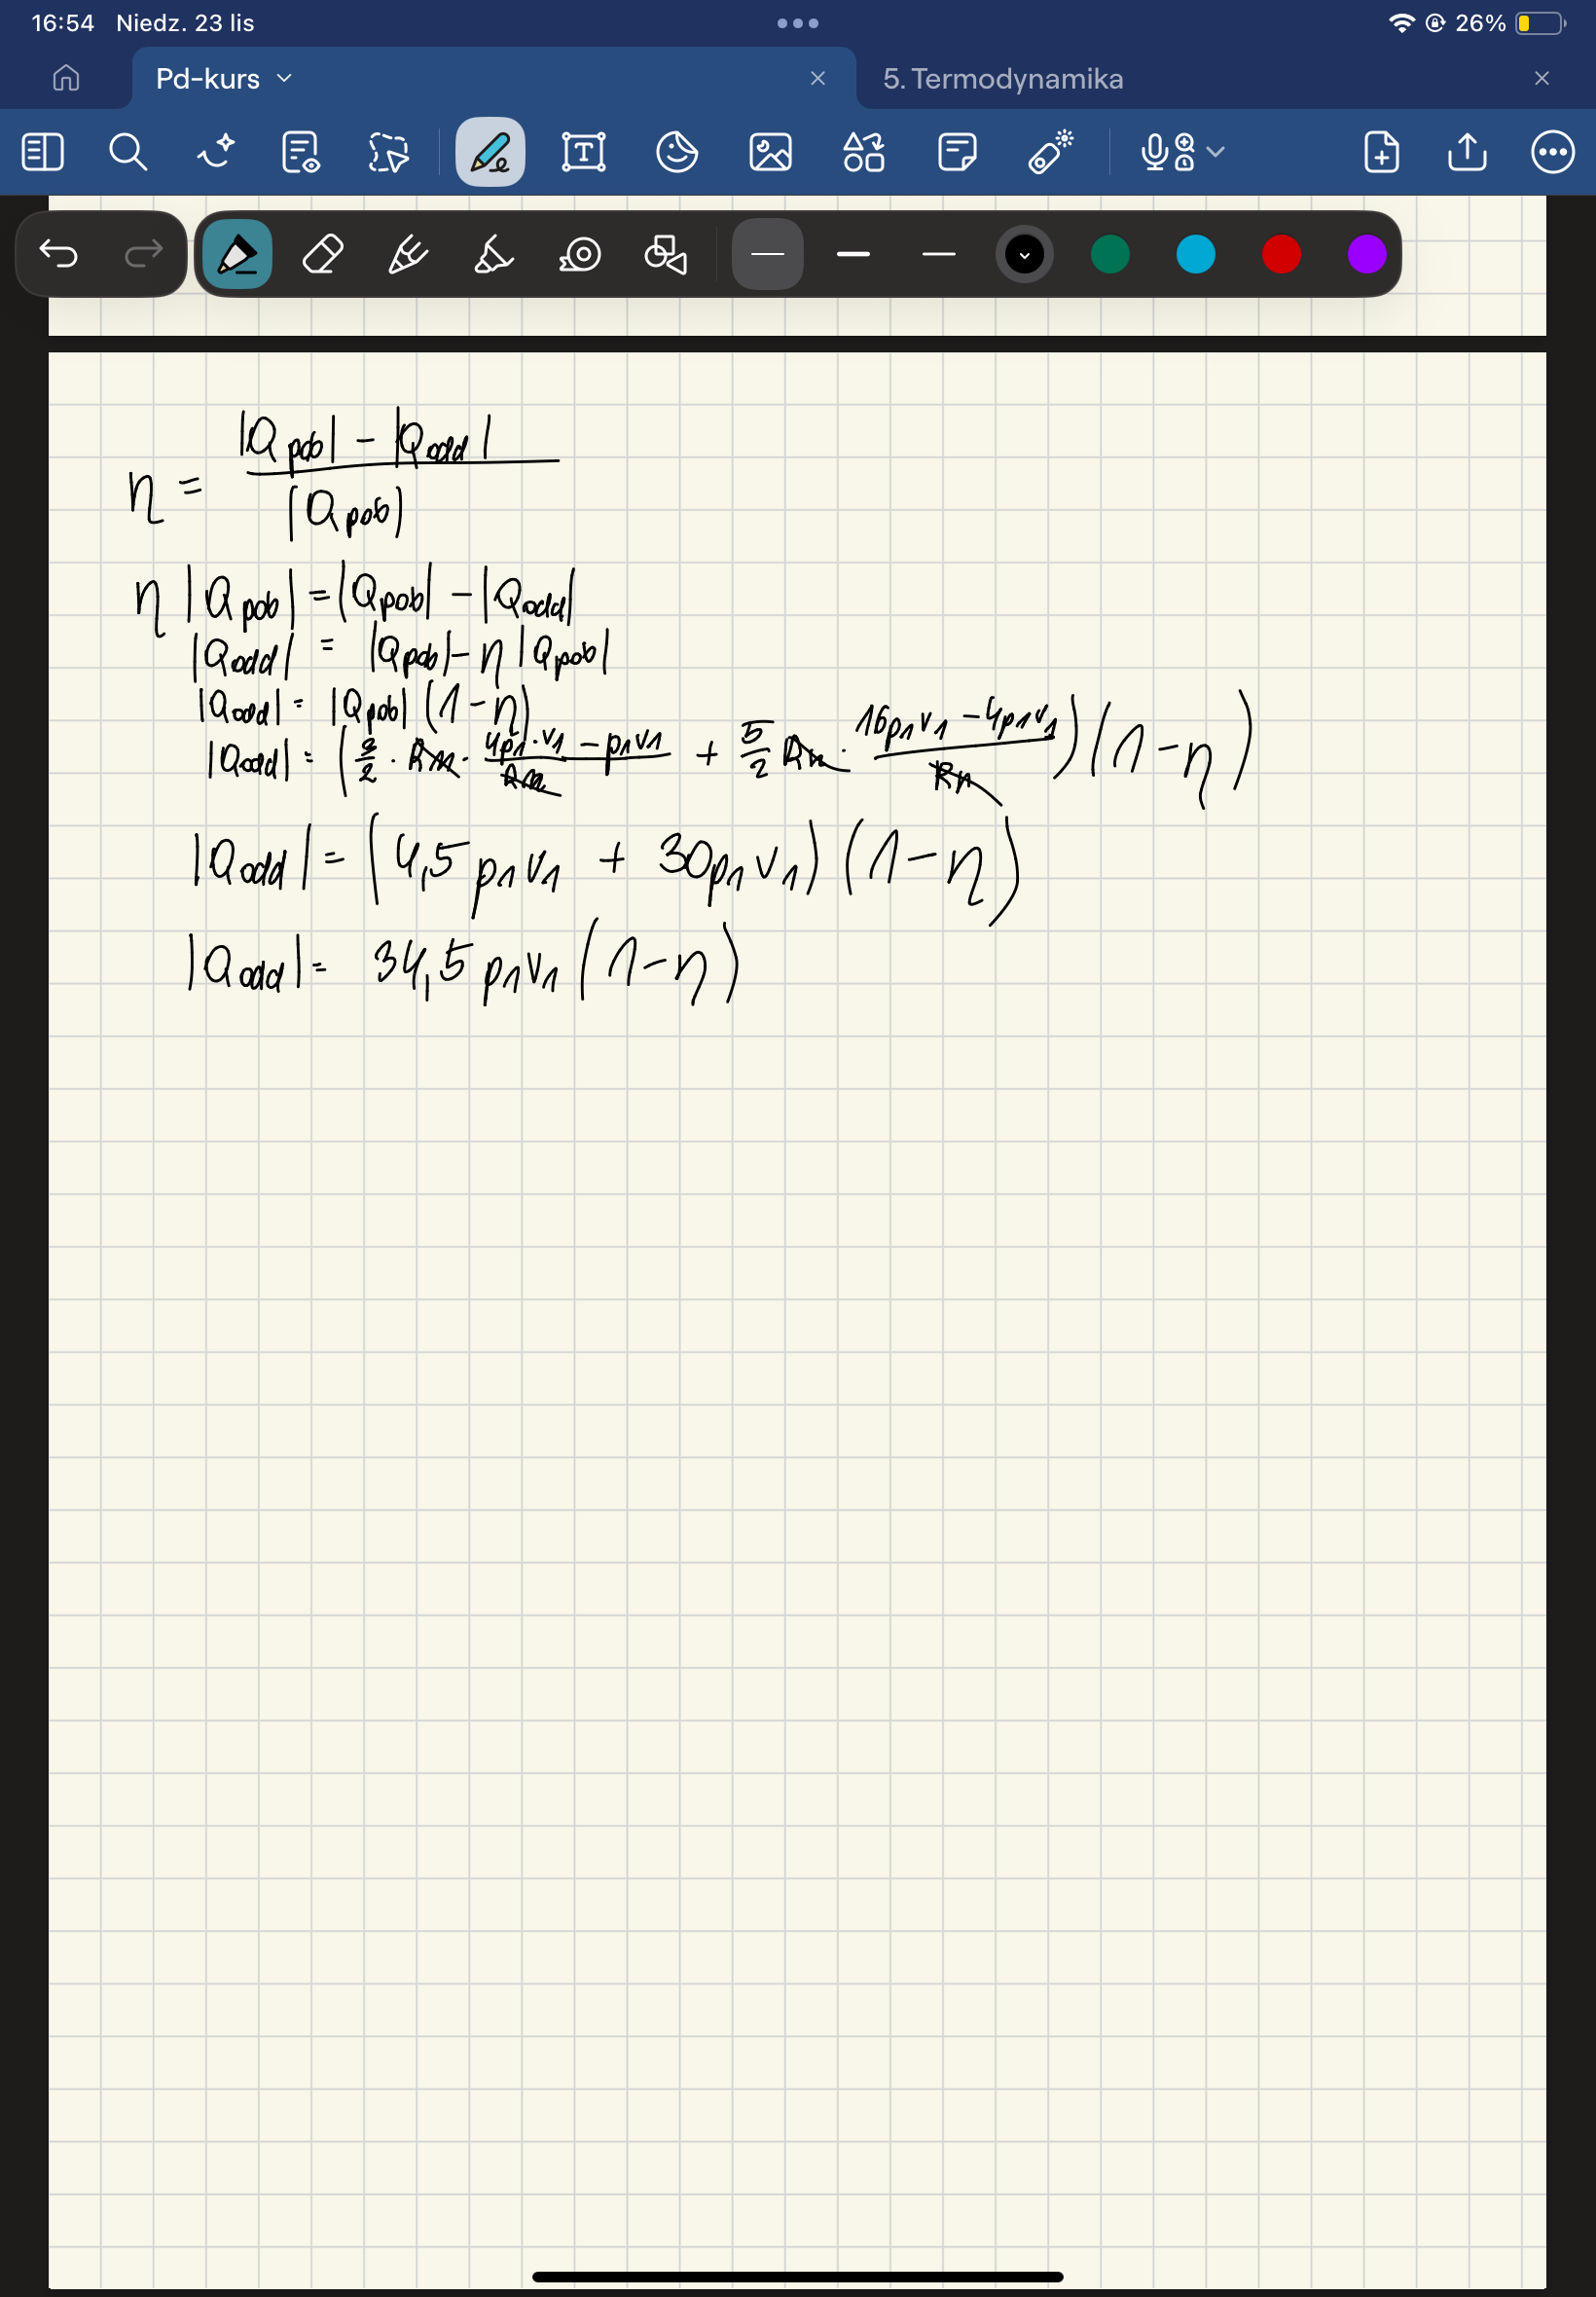 16:54 Niedz. 23 lis 26%
Pd-kurs 5. Termodynamika
η = (|Qpob| - |Qodd|) / |Qpob|
η |Qpob| = |Qpob| - |Qodd|
|Qodd| = |Qpob| - η |Qpob|
|Qodd| = |Qpob| (1 - η)
|Qodd| = (3/2 · Rn · (4p1 · V1 - p1V1)/Rn + 5/2 Rn · (16p1V1 - 4p1V1)/Rn) (1 - η)
|Qodd| = (4,5 p1V1 + 30p1V1) (1 - η)
|Qodd| = 34,5 p1V1 (1 - η)